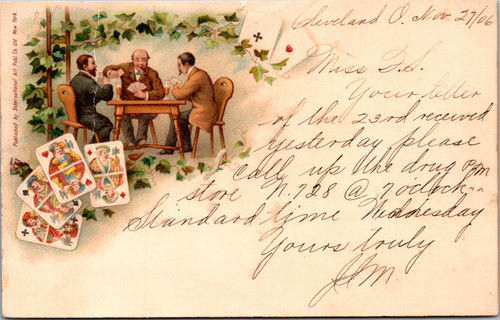 Published by International Art Publ. Co. Ltd. New York.
Cleveland O. Nov 27/06
Miss D.S.
Your letter
of the 23rd received
yesterday please
call up the drug
store N. 728 @ 7 oclock PM
Standard time Wednesday
Yours truly